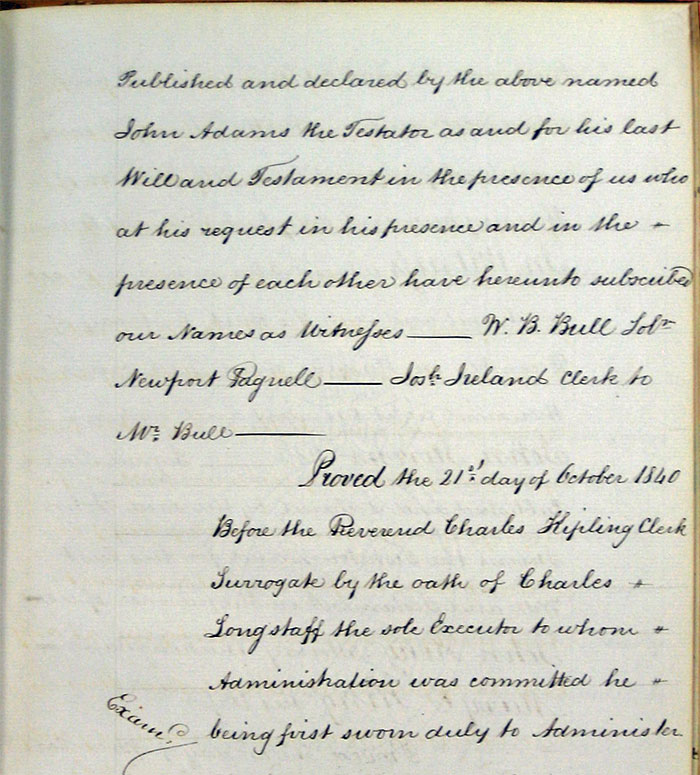 Published and declared by the above named
John Adams the Testator as and for his last
Will and Testament in the presence of us who
at his request in his presence and in the
presence of each other have hereunto subscribed
our Names as Witnesses —— W. B. Bull Solr
Newport Pagnell —— Josh Ireland Clerk to
Mr. Bull ——
Proved the 21st day of October 1840
Before the Reverend Charles Kipling Clerk
Surrogate by the oath of Charles
Longstaff the sole Executor to whom
Administration was committed he
being first sworn duly to Administer
Examd